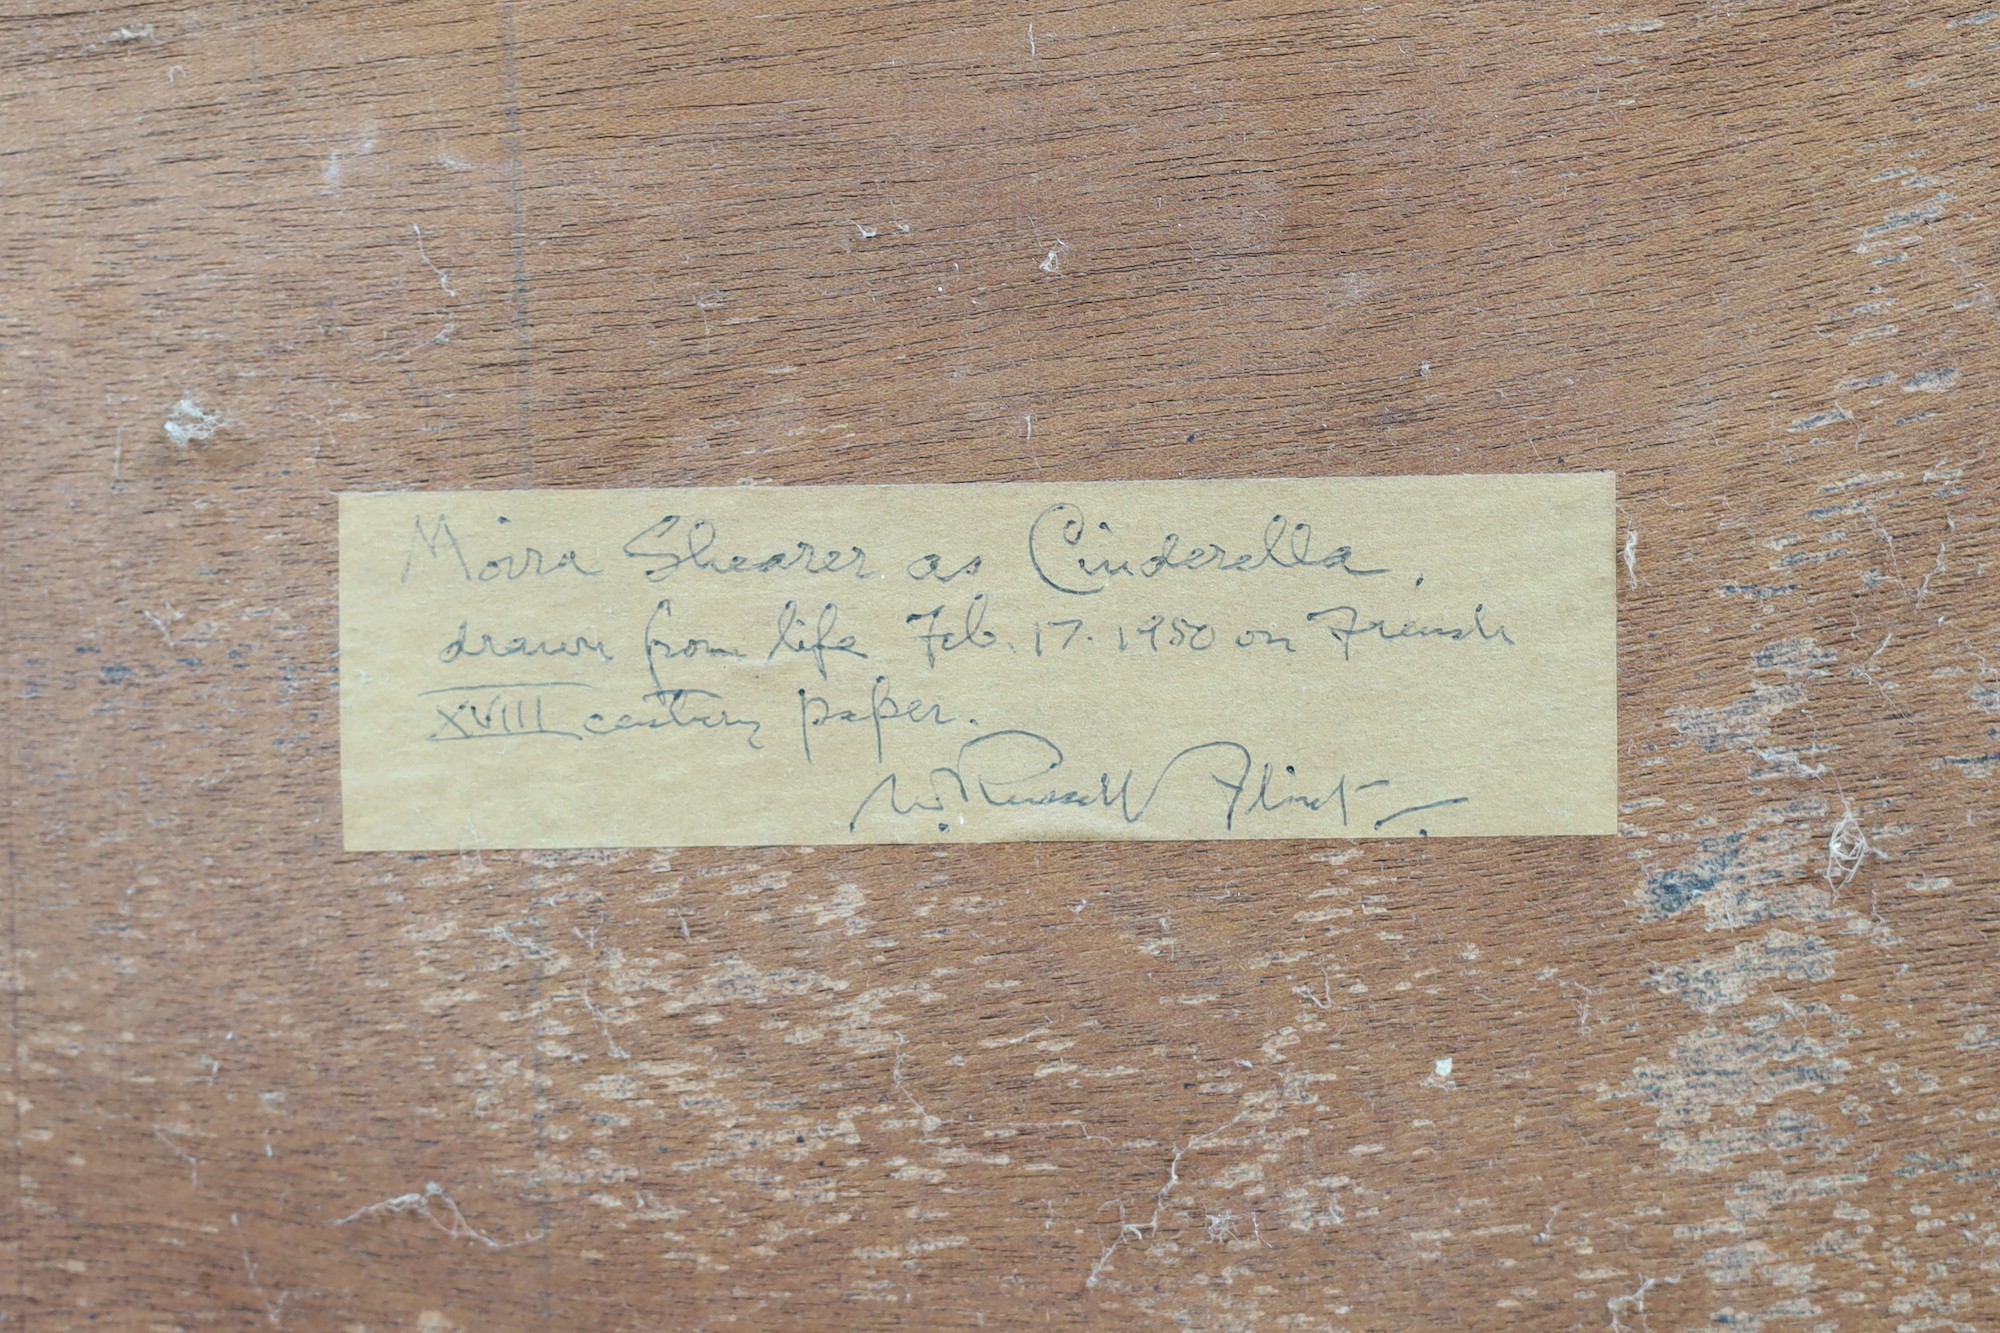 Moira Shearer as Cinderella.
drawn from life Feb. 17. 1950 on French
XVIII century paper.
W. Russell Flint